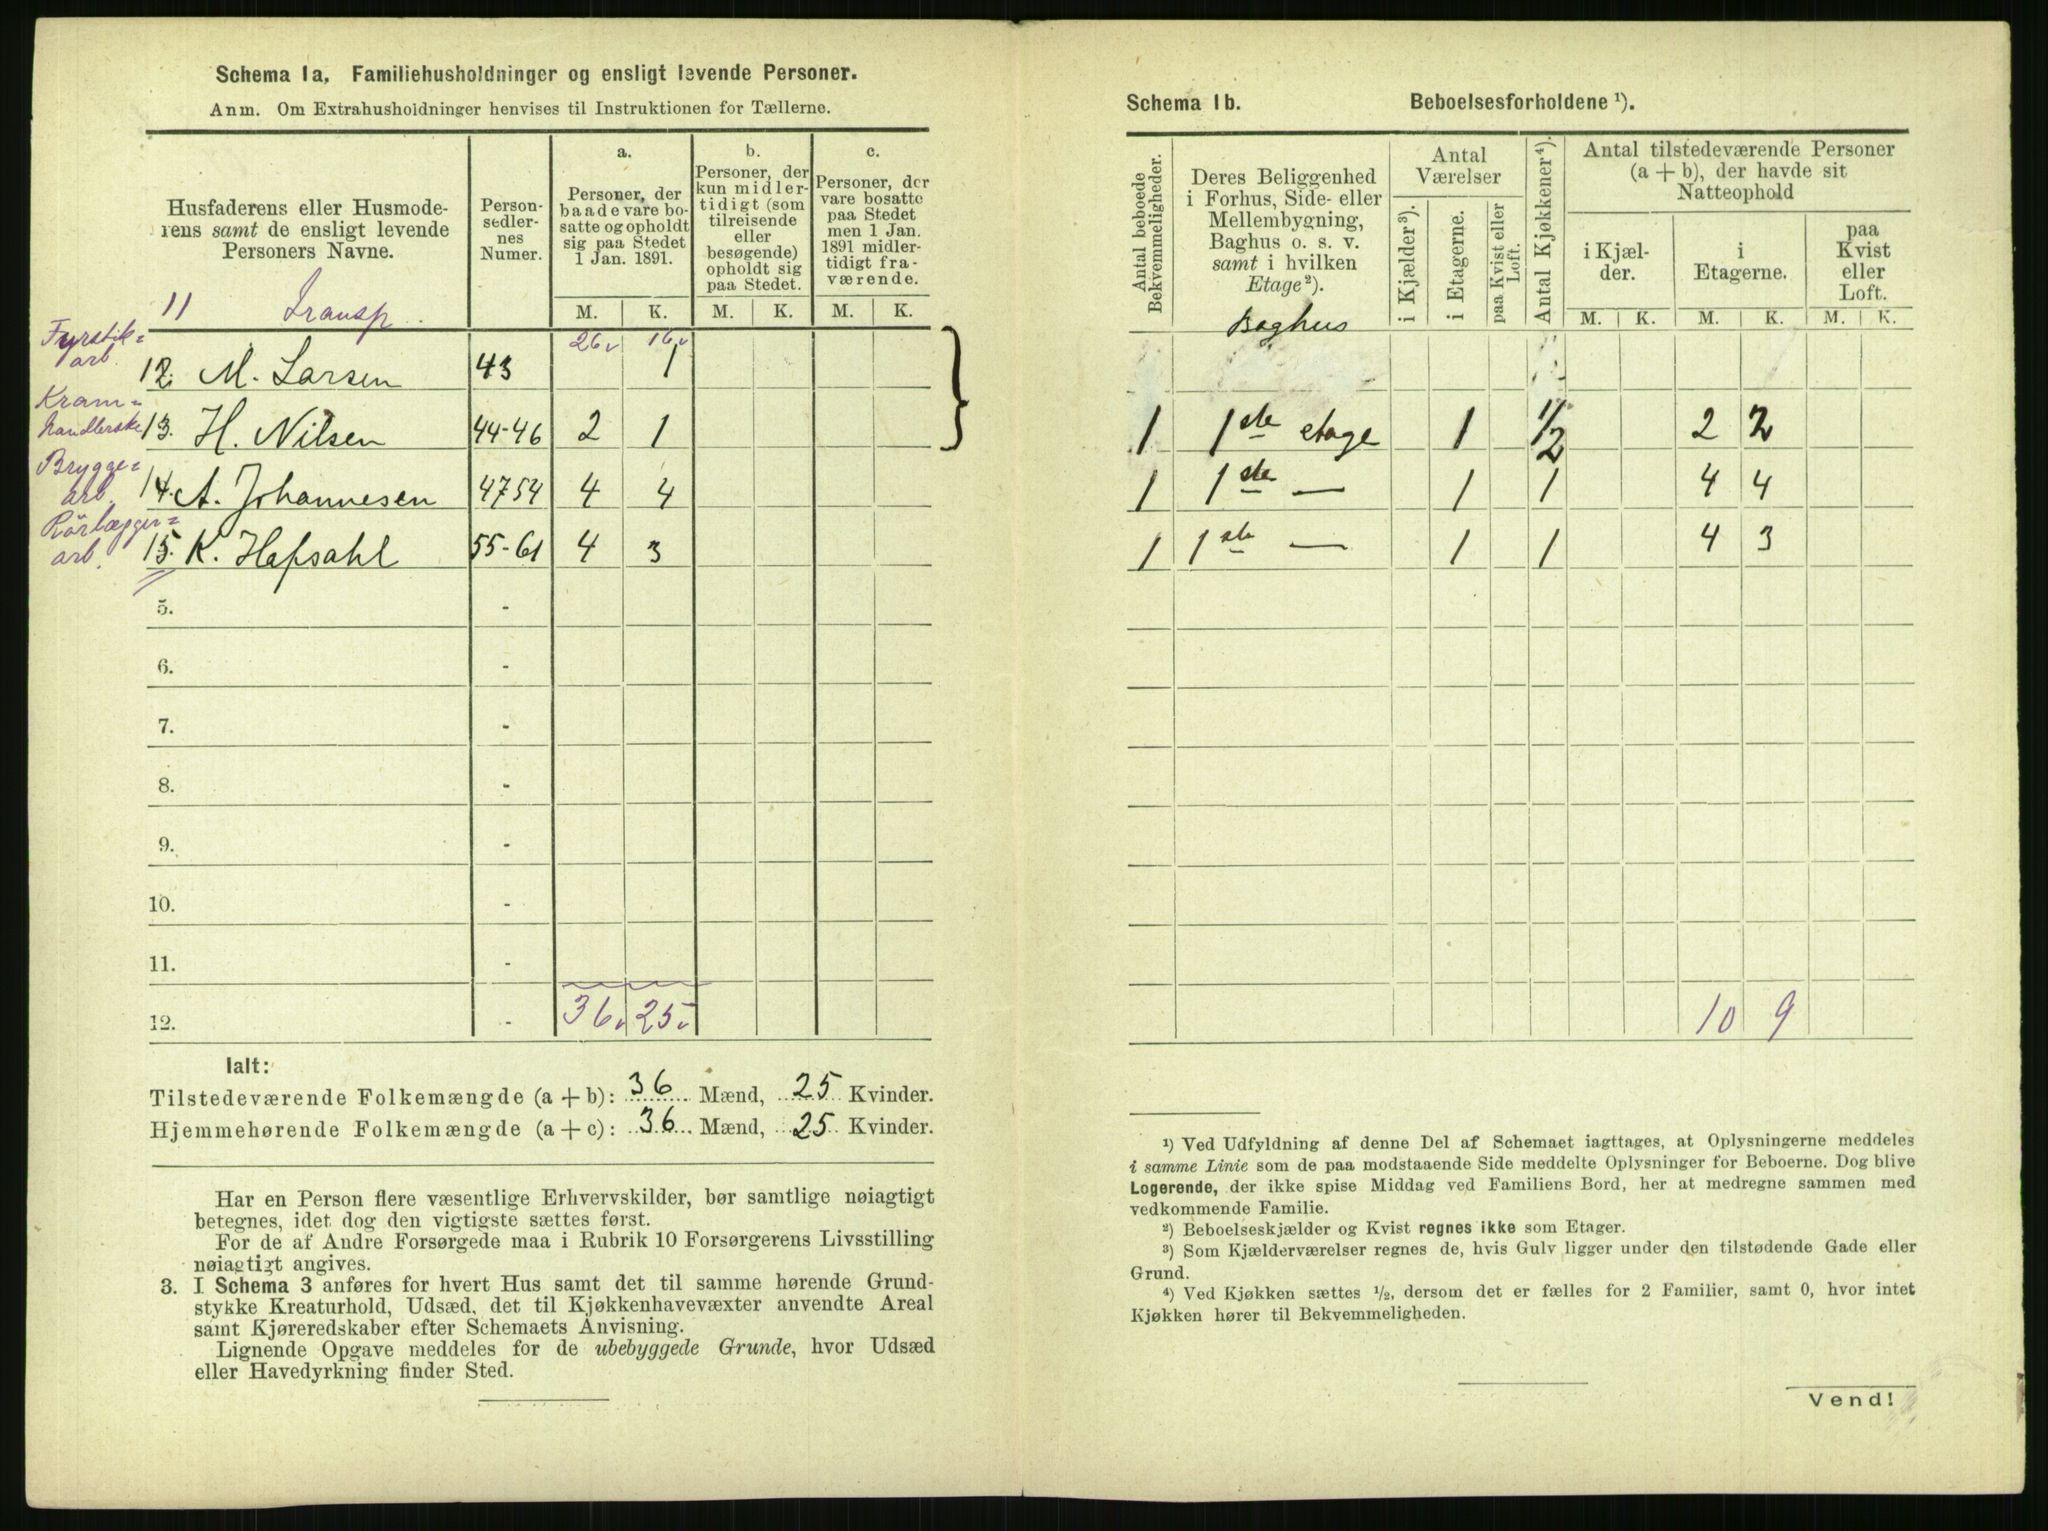 Schema 1a. Familiehusholdninger og ensligt levende Personer.
Anm. Om Extrahusholdninger henvises til Instruktionen for Tællerne.
Husfaderens eller Husmode-
rens samt de ensligt levende
Personers Navne.
Person-
sedler-
nes
Numer.
a.
Personer, der
baade vare bo-
satte og opholdt
sig paa Stedet
1 Jan. 1891.
b.
Personer, der
kun midler-
tidigt (som
tilreisende
eller
besøgende)
opholdt sig
paa Stedet.
c.
Personer, der
vare bosatte
paa Stedet
men 1 Jan.
1891 midler-
tidigt fra-
værende.
M. K. M. K. M. K.
11 Transp.
26 16
Fyrstik-
arb. 12. M. Larsen 43 1
Kram-
handlerske 13. H. Nilsen 44-46 2 1
Brygge-
arb. 14. A. Johannesen 4754 4 4
Rörlægger-
arb. 15. K. Hafsahl 55-61 4 3
5. -
6. -
7. -
8. -
9. -
10. -
11. -
12. - 36 25
Ialt:
Tilstedeværende Folkemængde (a + b): 36 Mænd, 25 Kvinder.
Hjemmehørende Folkemængde (a + c): 36 Mænd, 25 Kvinder.
Har en Person flere væsentlige Erhvervskilder, bør samtlige nøiagtigt
betegnes, idet dog den vigtigste sættes først.
For de af Andre Forsørgede maa i Rubrik 10 Forsørgerens Livsstilling
nøiagtigt angives.
3. I Schema 3 anføres for hvert Hus samt det til samme hørende Grund-
stykke Kreaturhold, Udsæd, det til Kjøkkenhavevæxter anvendte Areal
samt Kjøreredskaber efter Schemaets Anvisning.
Lignende Opgave meddeles for de ubebyggede Grunde, hvor Udsæd
eller Havedyrkning finder Sted.
Schema 1b. Beboelsesforholdene ¹).
Antal beboede
Bekvemmeligheder.
Deres Beliggenhed
i Forhus, Side- eller
Mellembygning,
Baghus o. s. v.
samt i hvilken
Etage ²).
Antal
Værelser
i Kjælder ³).
i Etagerne.
paa Kvist eller
Loft.
Antal Kjøkkener ⁴).
Antal tilstedeværende Personer
(a + b), der havde sit
Natteophold
i Kjæl-
der.
i
Etagerne.
paa
Kvist
eller
Loft.
M. K. M. K. M. K.
Baghus
1 1ste etage 1 1/2 2 2
1 1ste — 1 1 4 4
1 1ste — 1 1 4 3
10 9
¹) Ved Udfyldning af denne Del af Schemaet iagttages, at Oplysningerne meddeles
i samme Linie som de paa modstaaende Side meddelte Oplysninger for Beboerne. Dog blive
Logerende, der ikke spise Middag ved Familiens Bord, her at medregne sammen med
vedkommende Familie.
²) Beboelseskjælder og Kvist regnes ikke som Etager.
³) Som Kjælderværelser regnes de, hvis Gulv ligger under den tilstødende Gade eller
Grund.
⁴) Ved Kjøkken sættes ½, dersom det er fælles for 2 Familier, samt 0, hvor intet
Kjøkken hører til Bekvemmeligheden.
Vend!